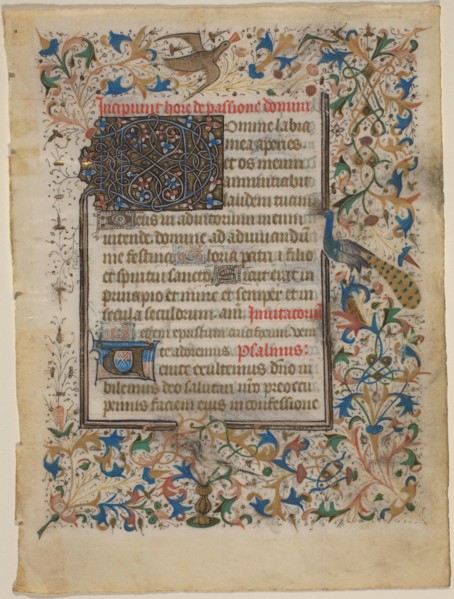 Incipiunt hore de passione domini
Domine labia
mea aperies.
et os meum
annuntiabit
laudem tuam
Deus in adiutorium meum
intende. domine ad adiuuandū
me festina. Gloria patri et filio
et spiritui sancto. Sicut erat in
principio et nunc et semper et in
secula seculorum. am̄. Inuitatoriū
Regem xp̄m crucifixum. Venite
te adoremus. Psalmus:
Uenite exultemus dn̄o iu
bilemus deo salutari nr̄o preoccu
pemus faciem eius in confessione